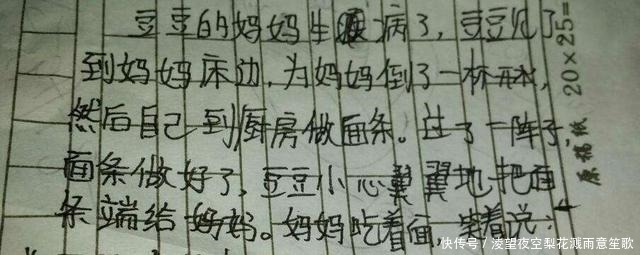 豆豆的妈妈生病了,豆豆
到妈妈床边,为妈妈倒了一杯开水,
然后自己到厨房做面条。过了一阵子
面条做好了,豆豆小心翼翼地把面
条端给妈妈。妈妈吃着面,笑着说:
20×25=
原稿纸
快传号/凌望夜空梨花溅雨意笙歌